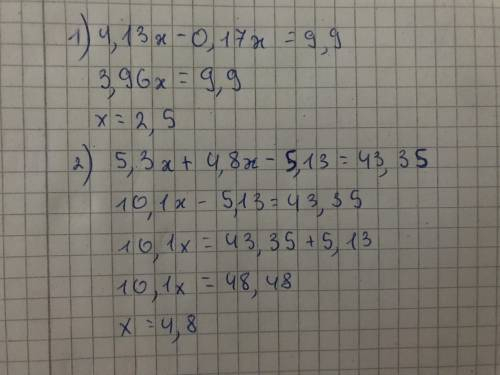 1) 4,13x - 0,17x = 9,9
3,96x = 9,9
x = 2,5
2) 5,3x + 4,8x - 5,13 = 43,35
10,1x - 5,13 = 43,35
10,1x = 43,35 + 5,13
10,1x = 48,48
x = 4,8